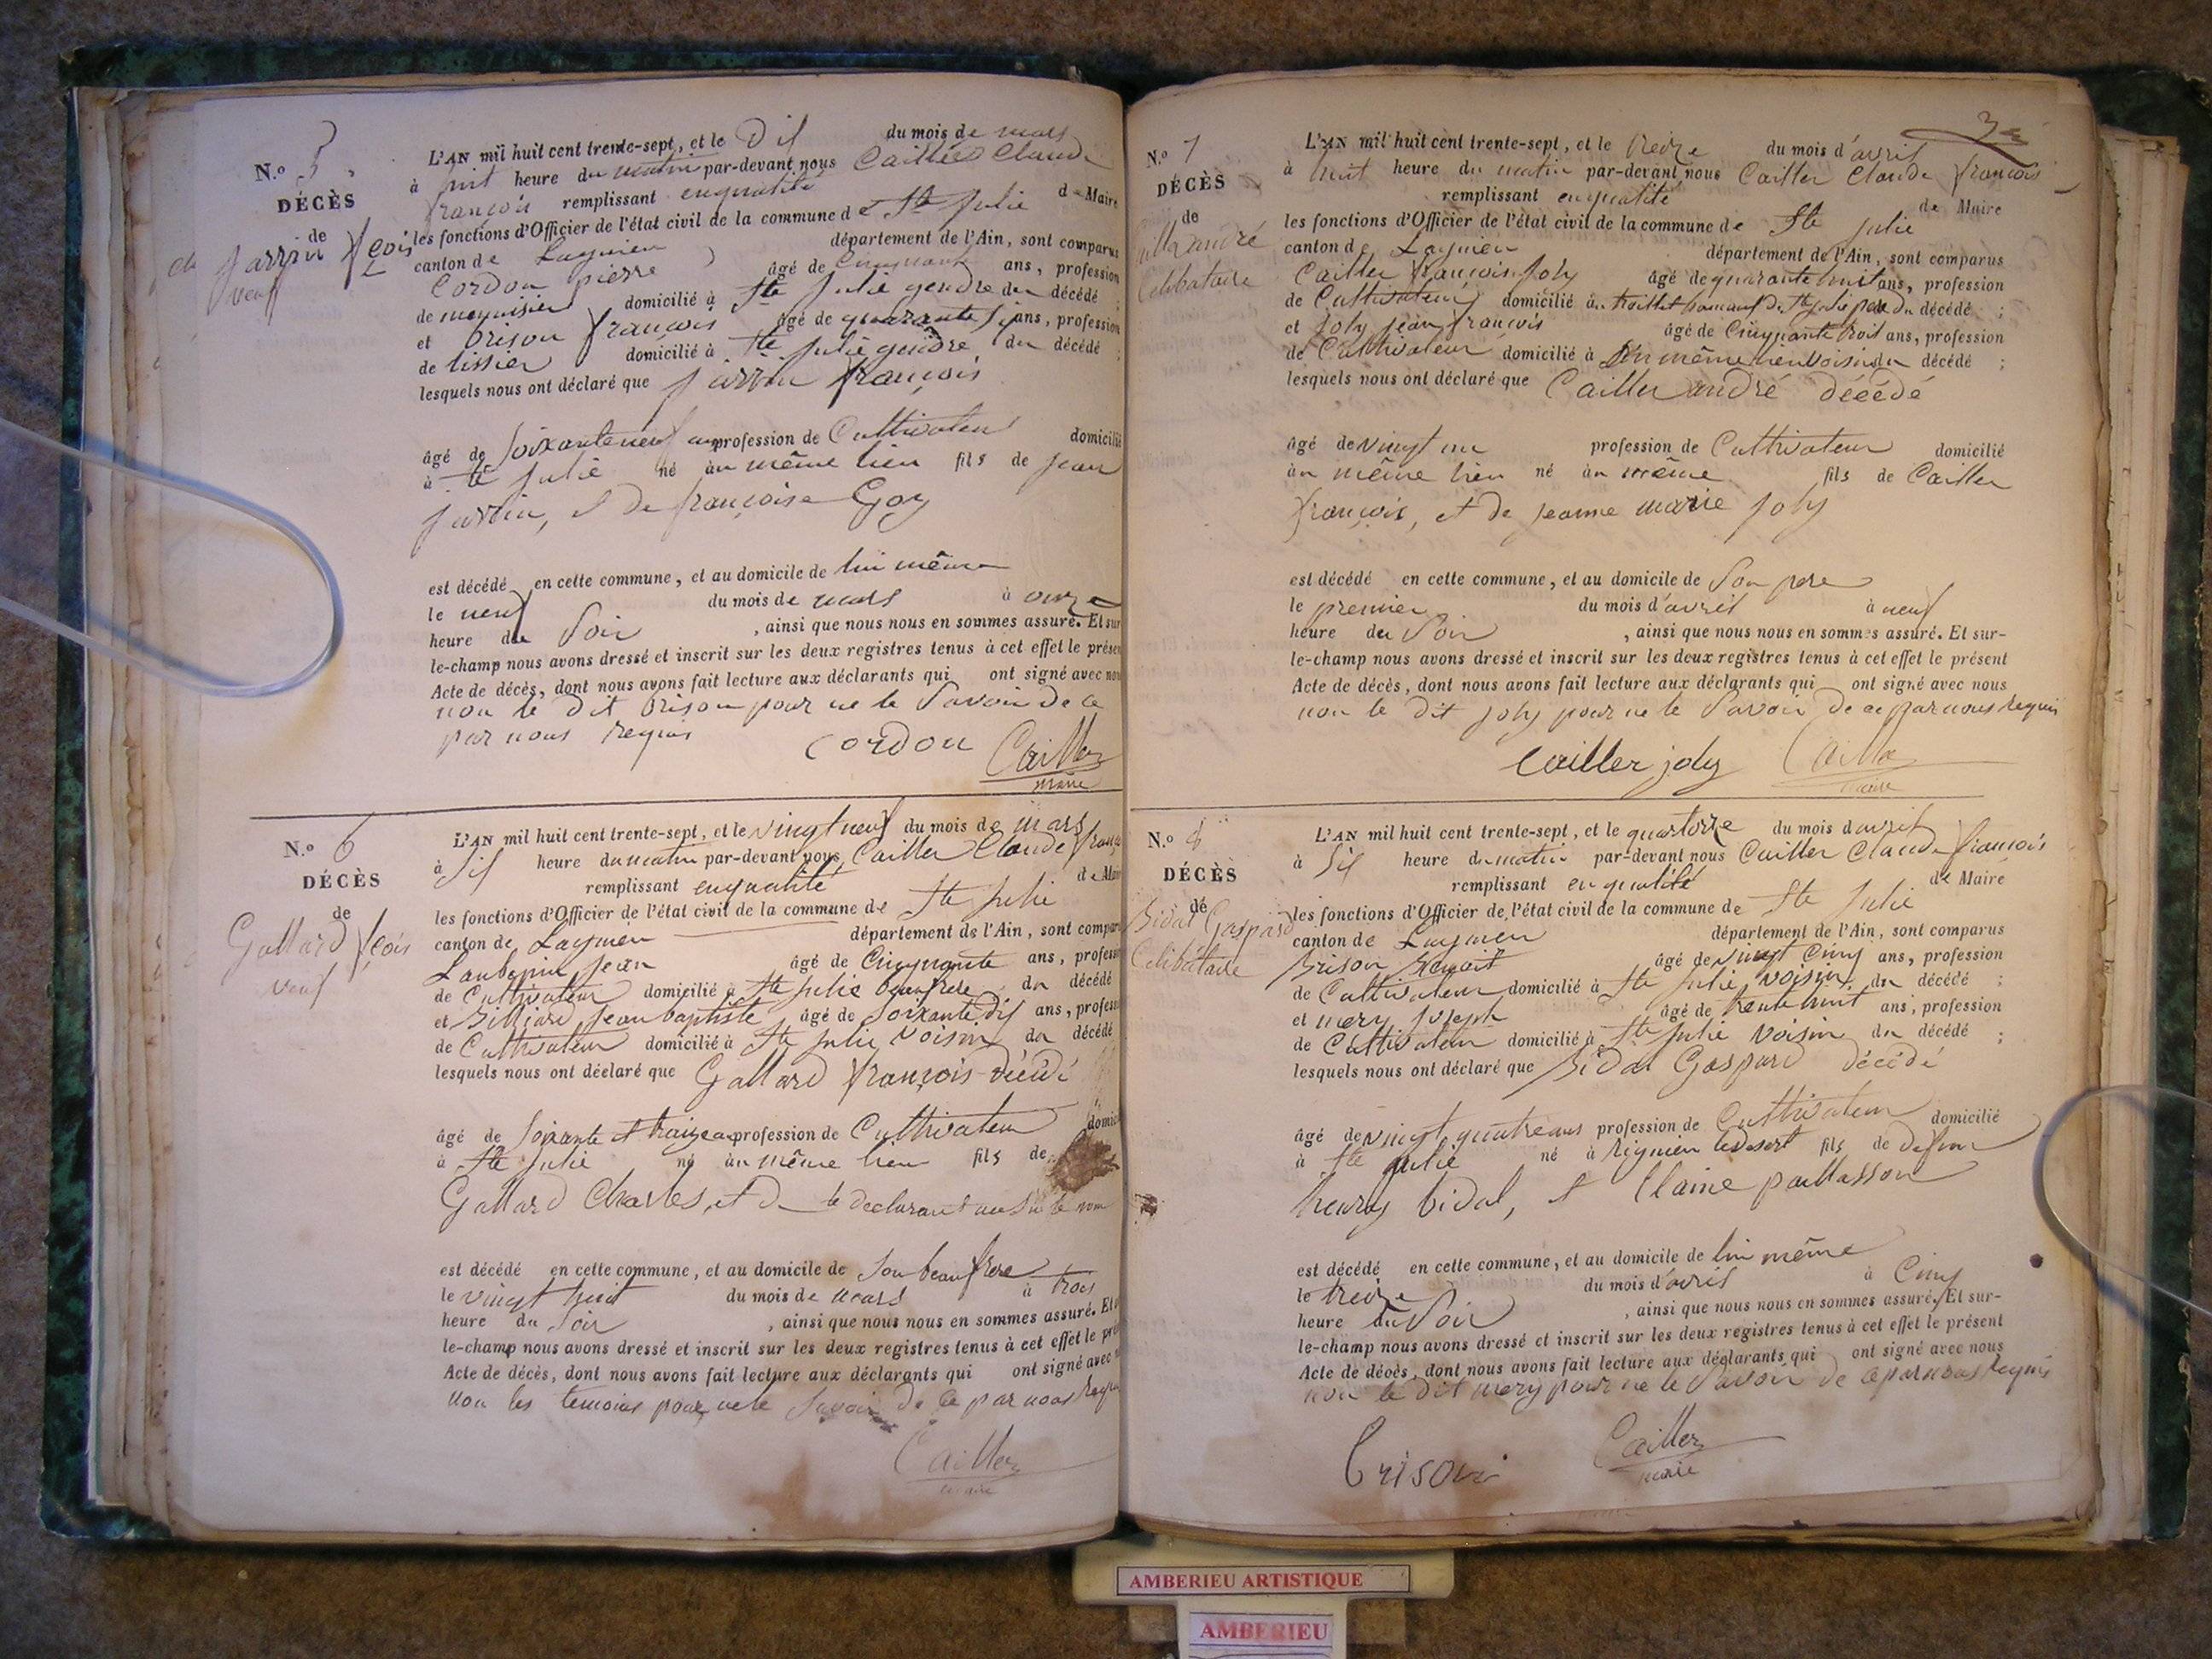 N.o 5
DÉCÈS
de
Jarrin fçois
veuf
L'AN mil huit cent trente-sept, et le Dix du mois de mars
à huit heure du matin par-devant nous Cailler Claude
françois remplissant en qualité de Maire
les fonctions d'Officier de l'état civil de la commune de Ste Julie
canton de Lagnieu département de l'Ain, sont comparus
Cordon pierre âgé de Cinquante ans, profession
de menuisier domicilié à Ste Julie gendre du décédé ;
et Brison françois âgé de quarante six ans, profession
de tissier domicilié à Ste Julie gendre du décédé ;
lesquels nous ont déclaré que Jarrin françois
âgé de Soixante neuf ans profession de Cultivateur domicilié
à Ste Julie né au même lieu fils de Jean
Jarrin, et de françoise Goy
est décédé en cette commune, et au domicile de lui même
le neuf du mois de mars à onze
heure du Soir , ainsi que nous nous en sommes assuré. Et sur
le-champ nous avons dressé et inscrit sur les deux registres tenus à cet effet le présen
Acte de décès, dont nous avons fait lecture aux déclarants qui ont signé avec nou
non le dit Brison pour ne le Savoir de ce
par nous requis
Cordon Cailler
maire
N.o 6
DÉCÈS
de
Gallard fçois
veuf
L'AN mil huit cent trente-sept, et le vingt neuf du mois de mars
à Six heure du matin par-devant nous Cailler Claude franç
remplissant en qualité de Mair
les fonctions d'Officier de l'état civil de la commune de Ste Julie
canton de Lagnieu département de l'Ain, sont compar
Laubepin Jean âgé de Cinquante ans, profess
de Cultivateur domicilié à Ste Julie beaufrere du décédé
et Billiard Jean baptiste âgé de Soixante dix ans, profess
de Cultivateur domicilié à Ste Julie Voisin du décédé
lesquels nous ont déclaré que Gallard françois décédé
âgé de Soixante et traize ans profession de Cultivateur domici
à Ste Julie né au même lieu fils de
Gallard Charles, et de le declarant non Su le nom
est décédé en cette commune, et au domicile de Son beaufrere
le vingt huit du mois de mars à trois
heure du Soir , ainsi que nous nous en sommes assuré. Et
le-champ nous avons dressé et inscrit sur les deux registres tenus à cet effet le pré
Acte de décès, dont nous avons fait lecture aux déclarants qui ont signé avec
non les temoins pour ne le Savoir de ce par nous requi
Cailler
maire
N.o 7
DÉCÈS
de
Cailler andré
Celibataire
L'AN mil huit cent trente-sept, et le treize du mois d'avril
à huit heure du matin par-devant nous Cailler Claude françois
remplissant en qualité de Maire
les fonctions d'Officier de l'état civil de la commune de Ste Julie
canton de Lagnieu département de l'Ain, sont comparus
Cailler françois Joly âgé de quarante huit ans, profession
de Cultivateur domicilié à hameau de Ste Julie pere du décédé ;
et Joly Jean françois âgé de Cinquante trois ans, profession
de Cultivateur domicilié à même lieu Voisin du décédé ;
lesquels nous ont déclaré que Cailler andré décédé
âgé de vingt un profession de Cultivateur domicilié
au même lieu né au même fils de Cailler
françois, et de Jeanne marie Joly
est décédé en cette commune, et au domicile de Son pere
le premier du mois d'avril à neuf
heure du Soir , ainsi que nous nous en sommes assuré. Et sur-
le-champ nous avons dressé et inscrit sur les deux registres tenus à cet effet le présent
Acte de décès, dont nous avons fait lecture aux déclarants qui ont signé avec nous
non le dit Joly pour ne le Savoir de ce par nous requis
Cailler joly Cailler
maire
N.o 8
DÉCÈS
de
Bidal Gaspard
Celibataire
L'AN mil huit cent trente-sept, et le quatorze du mois d'avril
à Six heure du matin par-devant nous Cailler Claude françois
remplissant en qualité de Maire
les fonctions d'Officier de l'état civil de la commune de Ste Julie
canton de Lagnieu département de l'Ain, sont comparus
Brison Benoit âgé de vingt Cinq ans, profession
de Cultivateur domicilié à Ste Julie Voisin du décédé ;
et mery Joseph âgé de trente huit ans, profession
de Cultivateur domicilié à Ste Julie Voisin du décédé ;
lesquels nous ont déclaré que Bidal Gaspard décédé
âgé de vingt quatre ans profession de Cultivateur domicilié
à Ste Julie né à Rignieu le desert fils de defun
henry bidal, et Claine paillasson
est décédé en cette commune, et au domicile de lui même
le treize du mois d'avril à Cinq
heure du Soir , ainsi que nous nous en sommes assuré. Et sur-
le-champ nous avons dressé et inscrit sur les deux registres tenus à cet effet le présent
Acte de décès, dont nous avons fait lecture aux déclarants qui ont signé avec nous
non le dit mery pour ne le Savoir de ce par nous requis
Brison Cailler
maire
AMBERIEU ARTISTIQUE
AMBERIEU